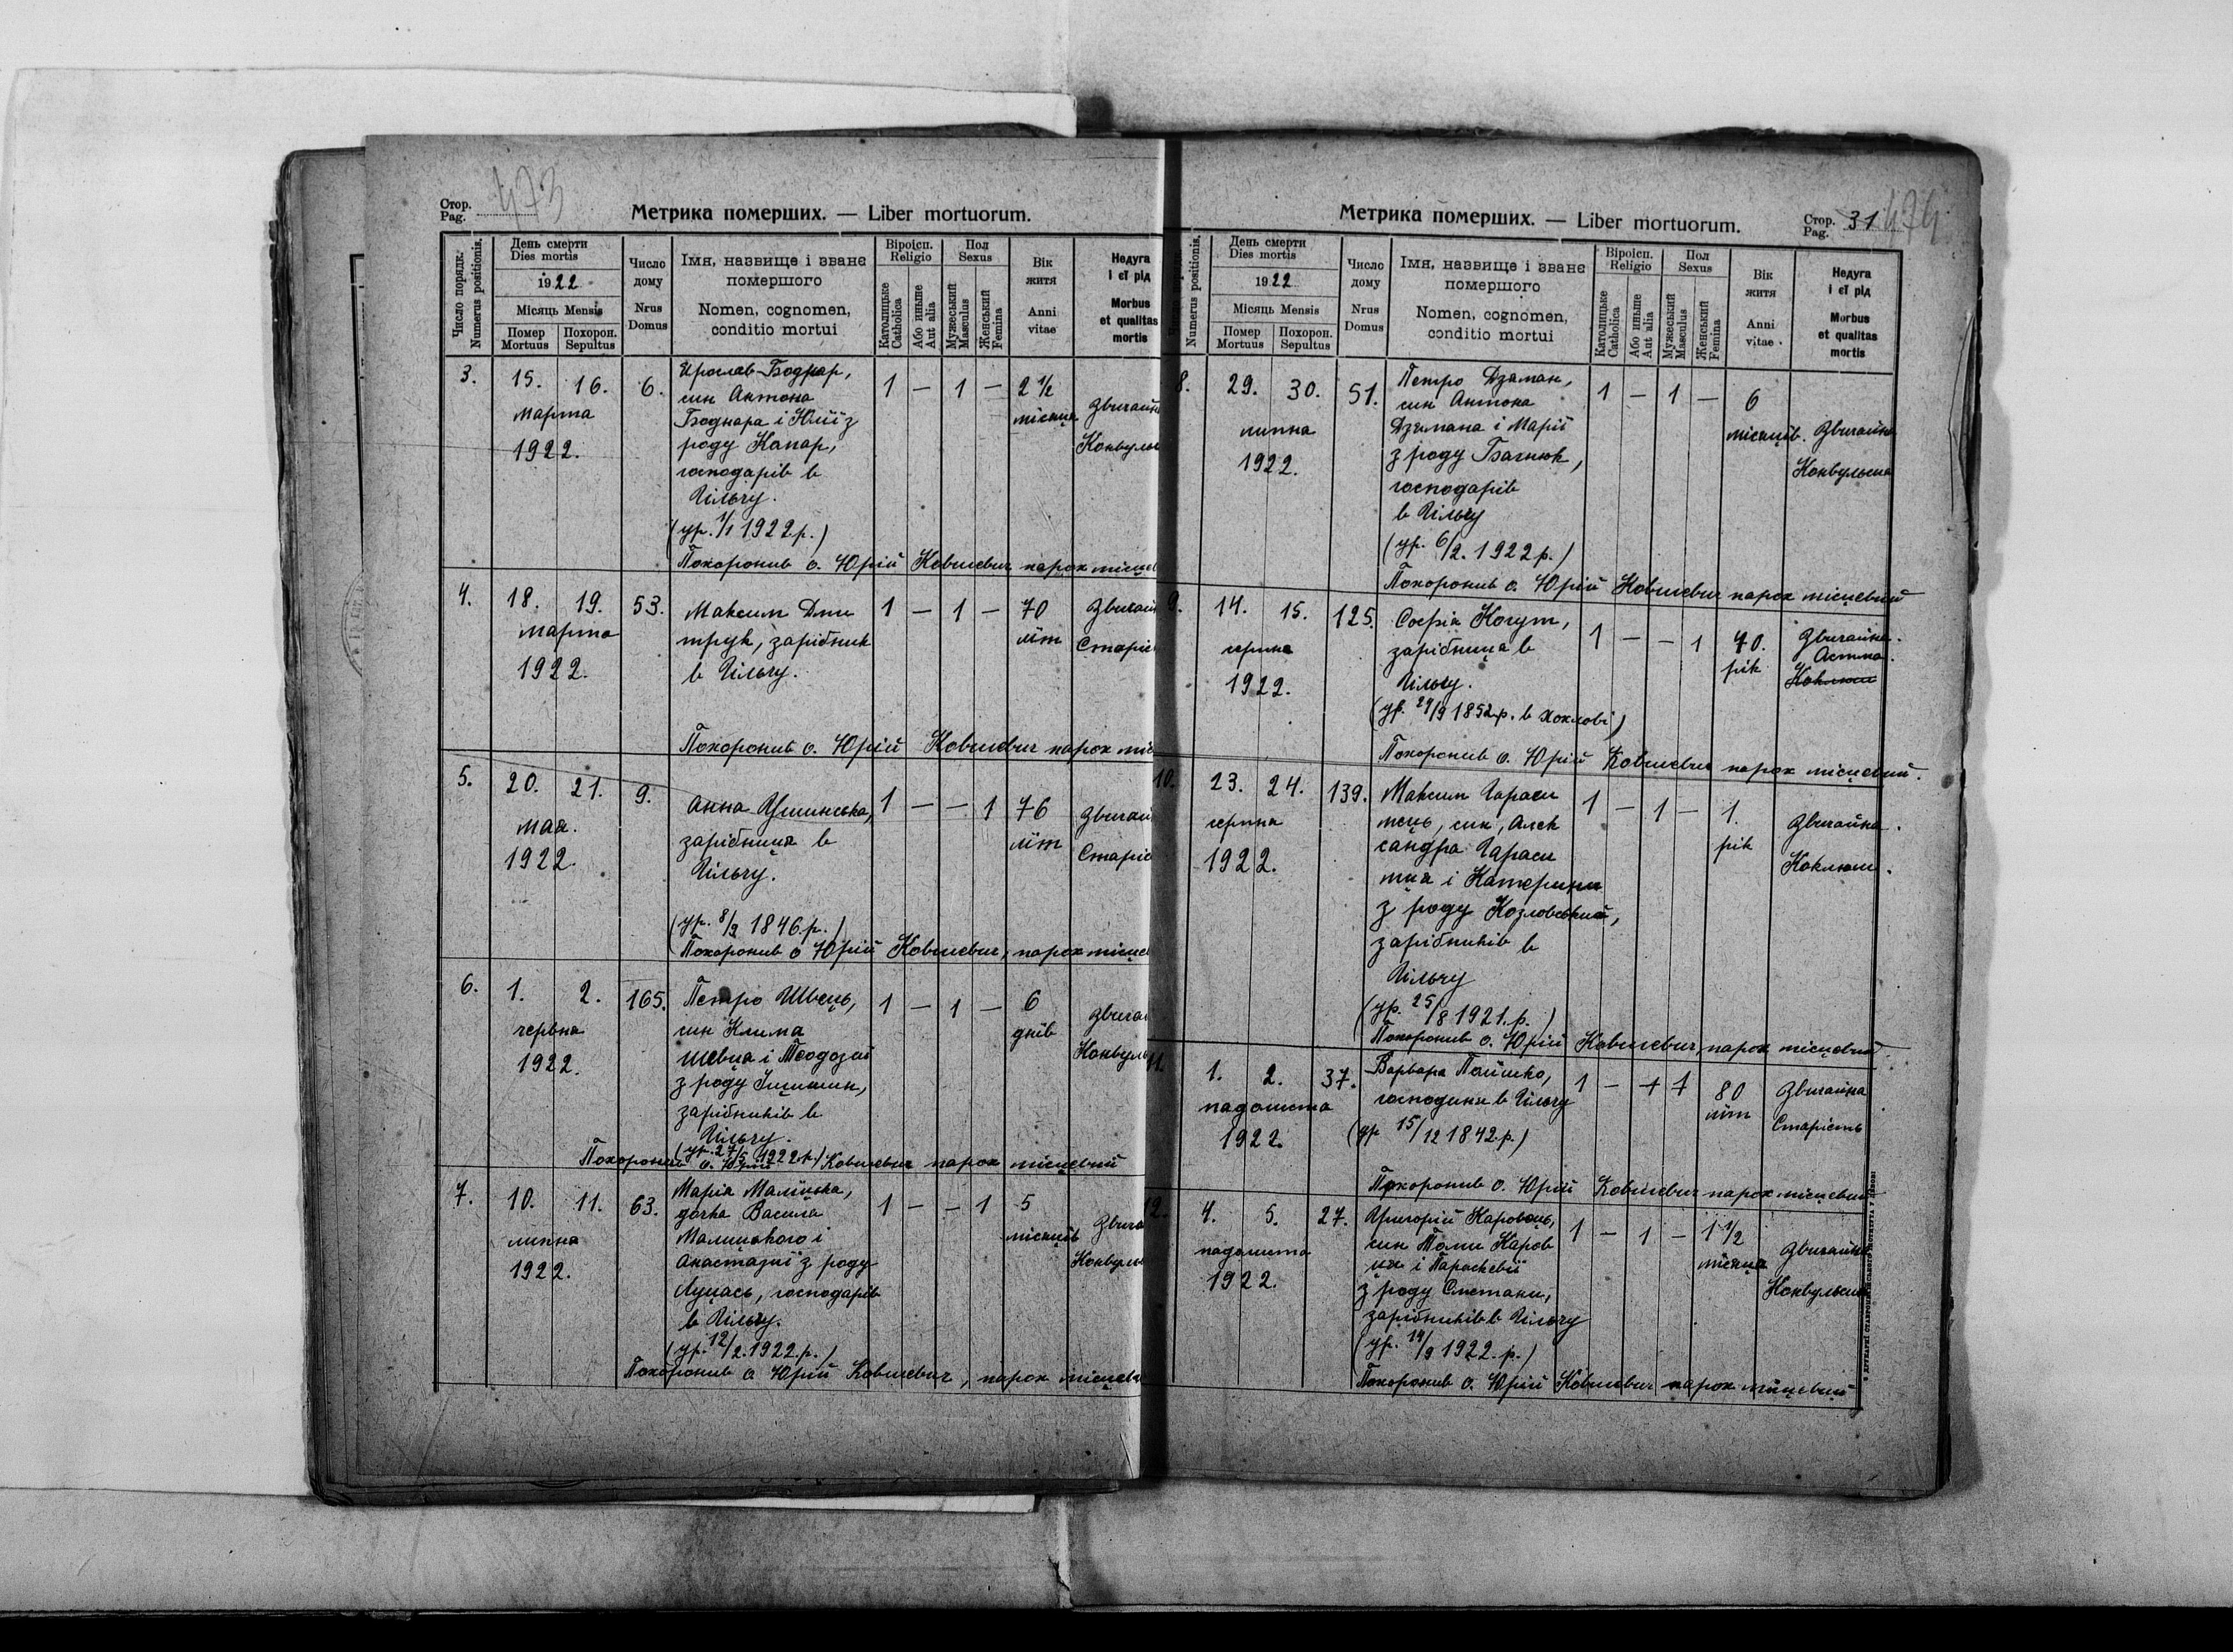 Стор.
Pag. 473
Метрика померших. — Liber mortuorum.
Число порядк.
Numerus positionis.
День смерти
Dies mortis
1922
Місяць Mensis
Помер
Mortuus
Похорон.
Sepultus
Число
дому
Nrus
Domus
Імя, назвище і зване
помершого
Nomen, cognomen,
conditio mortui
Віроісп.
Religio
Католицьке
Catholica
Або иньше
Aut alia
Пол
Sexus
Мужеський
Masculus
Женський
Femina
Вік
житя
Anni
vitae
Недуга
і єї рід
Morbus
et qualitas
mortis
3. 15. 16. 6. Ярослав Боднар, 1 — 1 — 2 1/2
марта син Антона місяця
1922. Боднара і Юлії з
роду Капар,
господарів в
Гільчу.
(ур. 1/1 1922 р.)
Похоронив о. Юрій Ковшевич парох
4. 18. 19. 53. Максим Дми 1 — 1 — 70
марта трук, зарібник літ
1922. в Гільчу.
Похоронив о. Юрій Ковшевич парох
5. 20. 21. 9. Анна 1 — — 1 76
мая. зарібниця в літ
1922. Гільчу.
(ур. 8/2 1846 р.)
Похоронив о Юрій Ковшевич, парох
6. 1. 2. 165. Петро Швець, 1 — 1 — 6
червня син Клима днів
1922. Шевця і Теодозії
з роду
зарібників в
Гільчу.
(ур. 27/5 1922 р.)
Похоронив о. Юрій Ковшевич парох місцевий
7. 10. 11. 63. Марія Маліцька, 1 — — 1 5
липня дочка Василя місяців
1922. Малицького і
Анастазії з роду
Луцась, господарів
в Гільчу.
(ур. 12/2. 1922. р.)
Похоронив о Юрій Ковшевич, парох
Метрика померших. — Liber mortuorum.
Стор.
Pag. 31 474
Numerus positionis.
День смерти
Dies mortis
1922
Місяць Mensis
Помер
Mortuus
Похорон.
Sepultus
Число
дому
Nrus
Domus
Імя, назвище і зване
помершого
Nomen, cognomen,
conditio mortui
Віроісп.
Religio
Католицьке
Catholica
Або иньше
Aut alia
Пол
Sexus
Мужеський
Masculus
Женський
Femina
Вік
житя
Anni
vitae
Недуга
і єї рід
Morbus
et qualitas
mortis
8. 29. 30. 51. Петро Дзяман, 1 — 1 — 6
липня син Антона місяців. Звичайна
1922. Дзямана і Марії Конвульсия
з роду Багнюк,
господарів
в Гільчу
(ур. 6/2. 1922 р.)
Похоронив о. Юрій Ковшевич парох місцевий
9. 14. 15. 125. Софія Когут, 1 — — 1 70. Звичайна.
серпня зарібниця в рік Астма.
1922. Гільчу. Коклюш
(ур. 29/9 1852 р. в Хохлові)
Похоронив о. Юрій Ковшевич парох місцевий.
10. 23. 24. 139. Максим Гараси 1 — 1 — 1. Звичайна.
серпня мець, син, Алек рік Коклюш.
1922. сандра Гараси
мця і Катерини
з роду Козловський,
зарібників в
Гільчу
(ур. 25/8 1921. р.)
Похоронив о. Юрій Ковшевич, парох місцевий
11. 1. 2. 37. Варвара Пайшко, 1 — 1 80 Звичайна
падолиста господиня в Гільчу літ Старість
1922. (ур 15/12 1842. р.)
Похоронив о. Юрій Ковшевич парох місцевий
12. 4. 5. 27. Григорій Каровець, 1 — 1 — 1 1/2
падолиста син Томи Каров місяця Звичайна
1922. ця і Параскевії Конвульсия
з роду Сметани,
зарібників в Гільчу
(ур. 14/9 1922. р.)
Похоронив о. Юрій Ковшевич парох місцевий